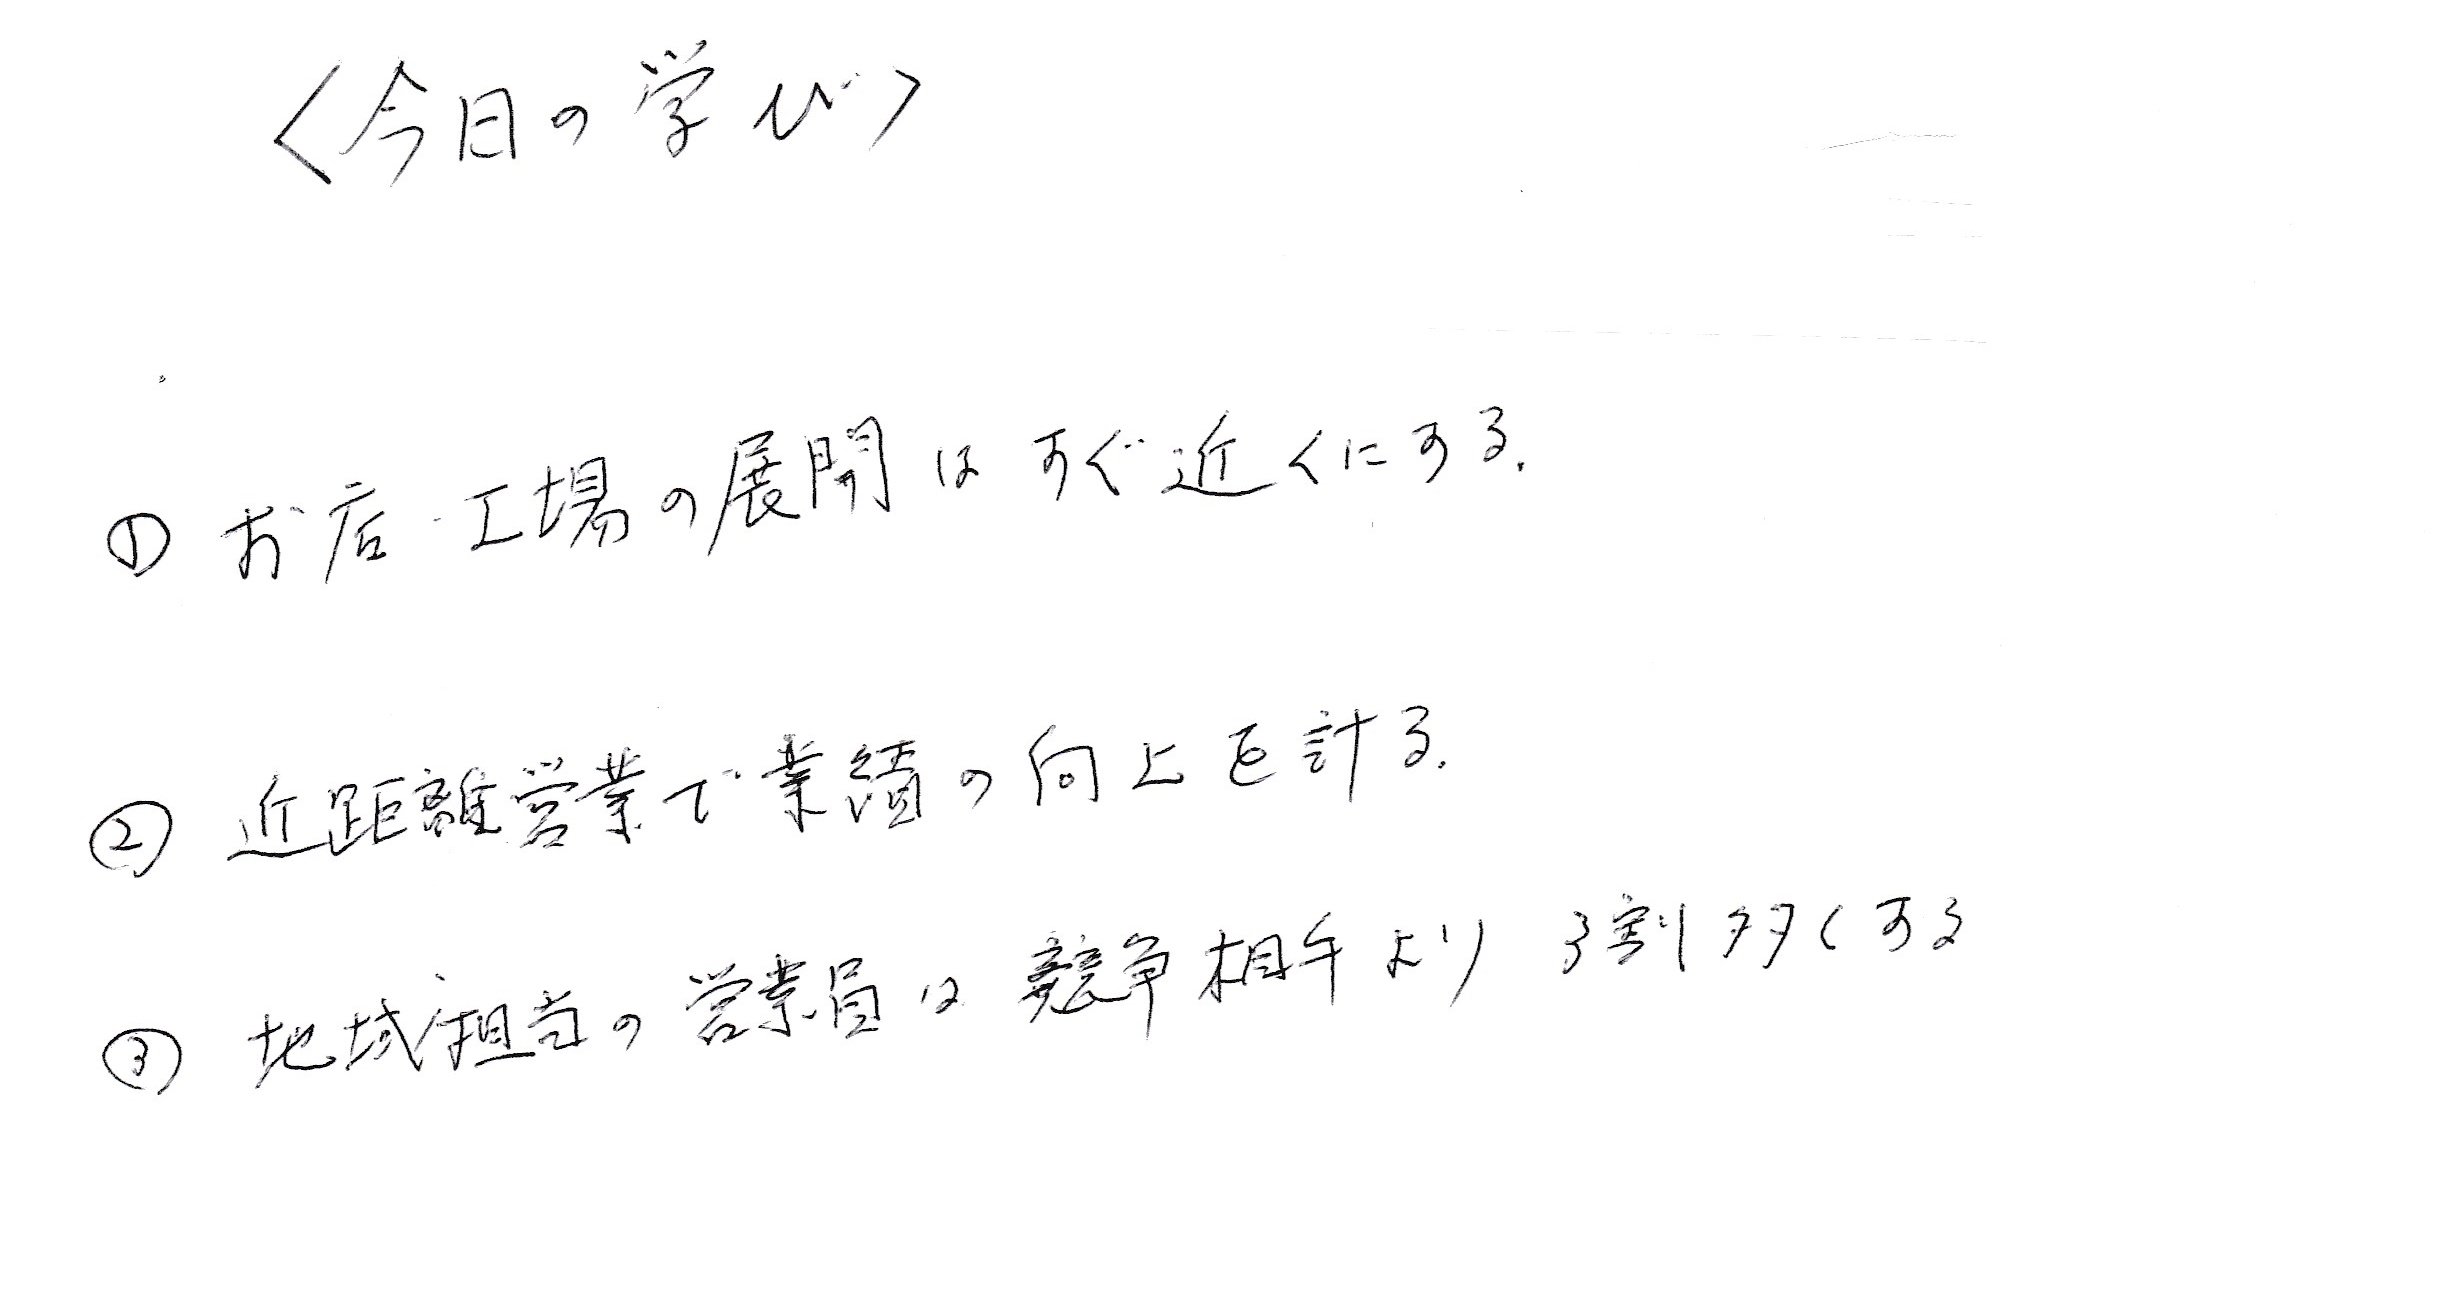 〈今日の学び〉
① お店・工場の展開はすぐ近くにする.
② 近距離営業で業績の向上を計る.
③ 地域担当の営業員は競争相手より3割多くする